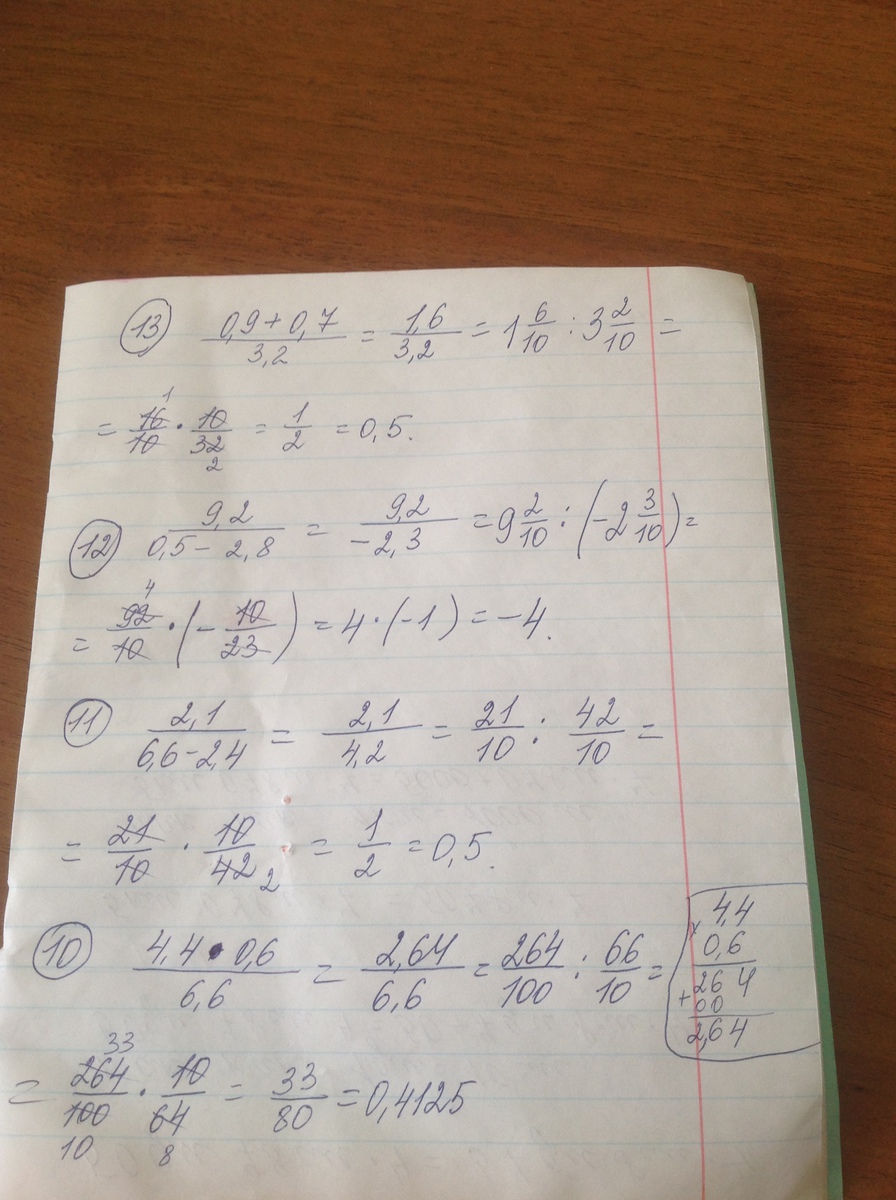 13 (0,9 + 0,7)/3,2 = 1,6/3,2 = 1 6/10 : 3 2/10 =
= 16/10 · 10/32 = 1/2 = 0,5.
1
2
12 9,2/(0,5 - 2,8) = 9,2/-2,3 = 9 2/10 : (-2 3/10) =
4
= 92/10 · (-10/23) = 4 · (-1) = -4.
11 2,1/(6,6 - 2,4) = 2,1/4,2 = 21/10 : 42/10 =
= 21/10 · 10/42 = 1/2 = 0,5.
2
10 (4,4 · 0,6)/6,6 = 2,64/6,6 = 264/100 : 66/10 =
4,4
x 0,6
264
+ 00
2,64
33
= 264/100 · 10/64 = 33/80 = 0,4125
10 8